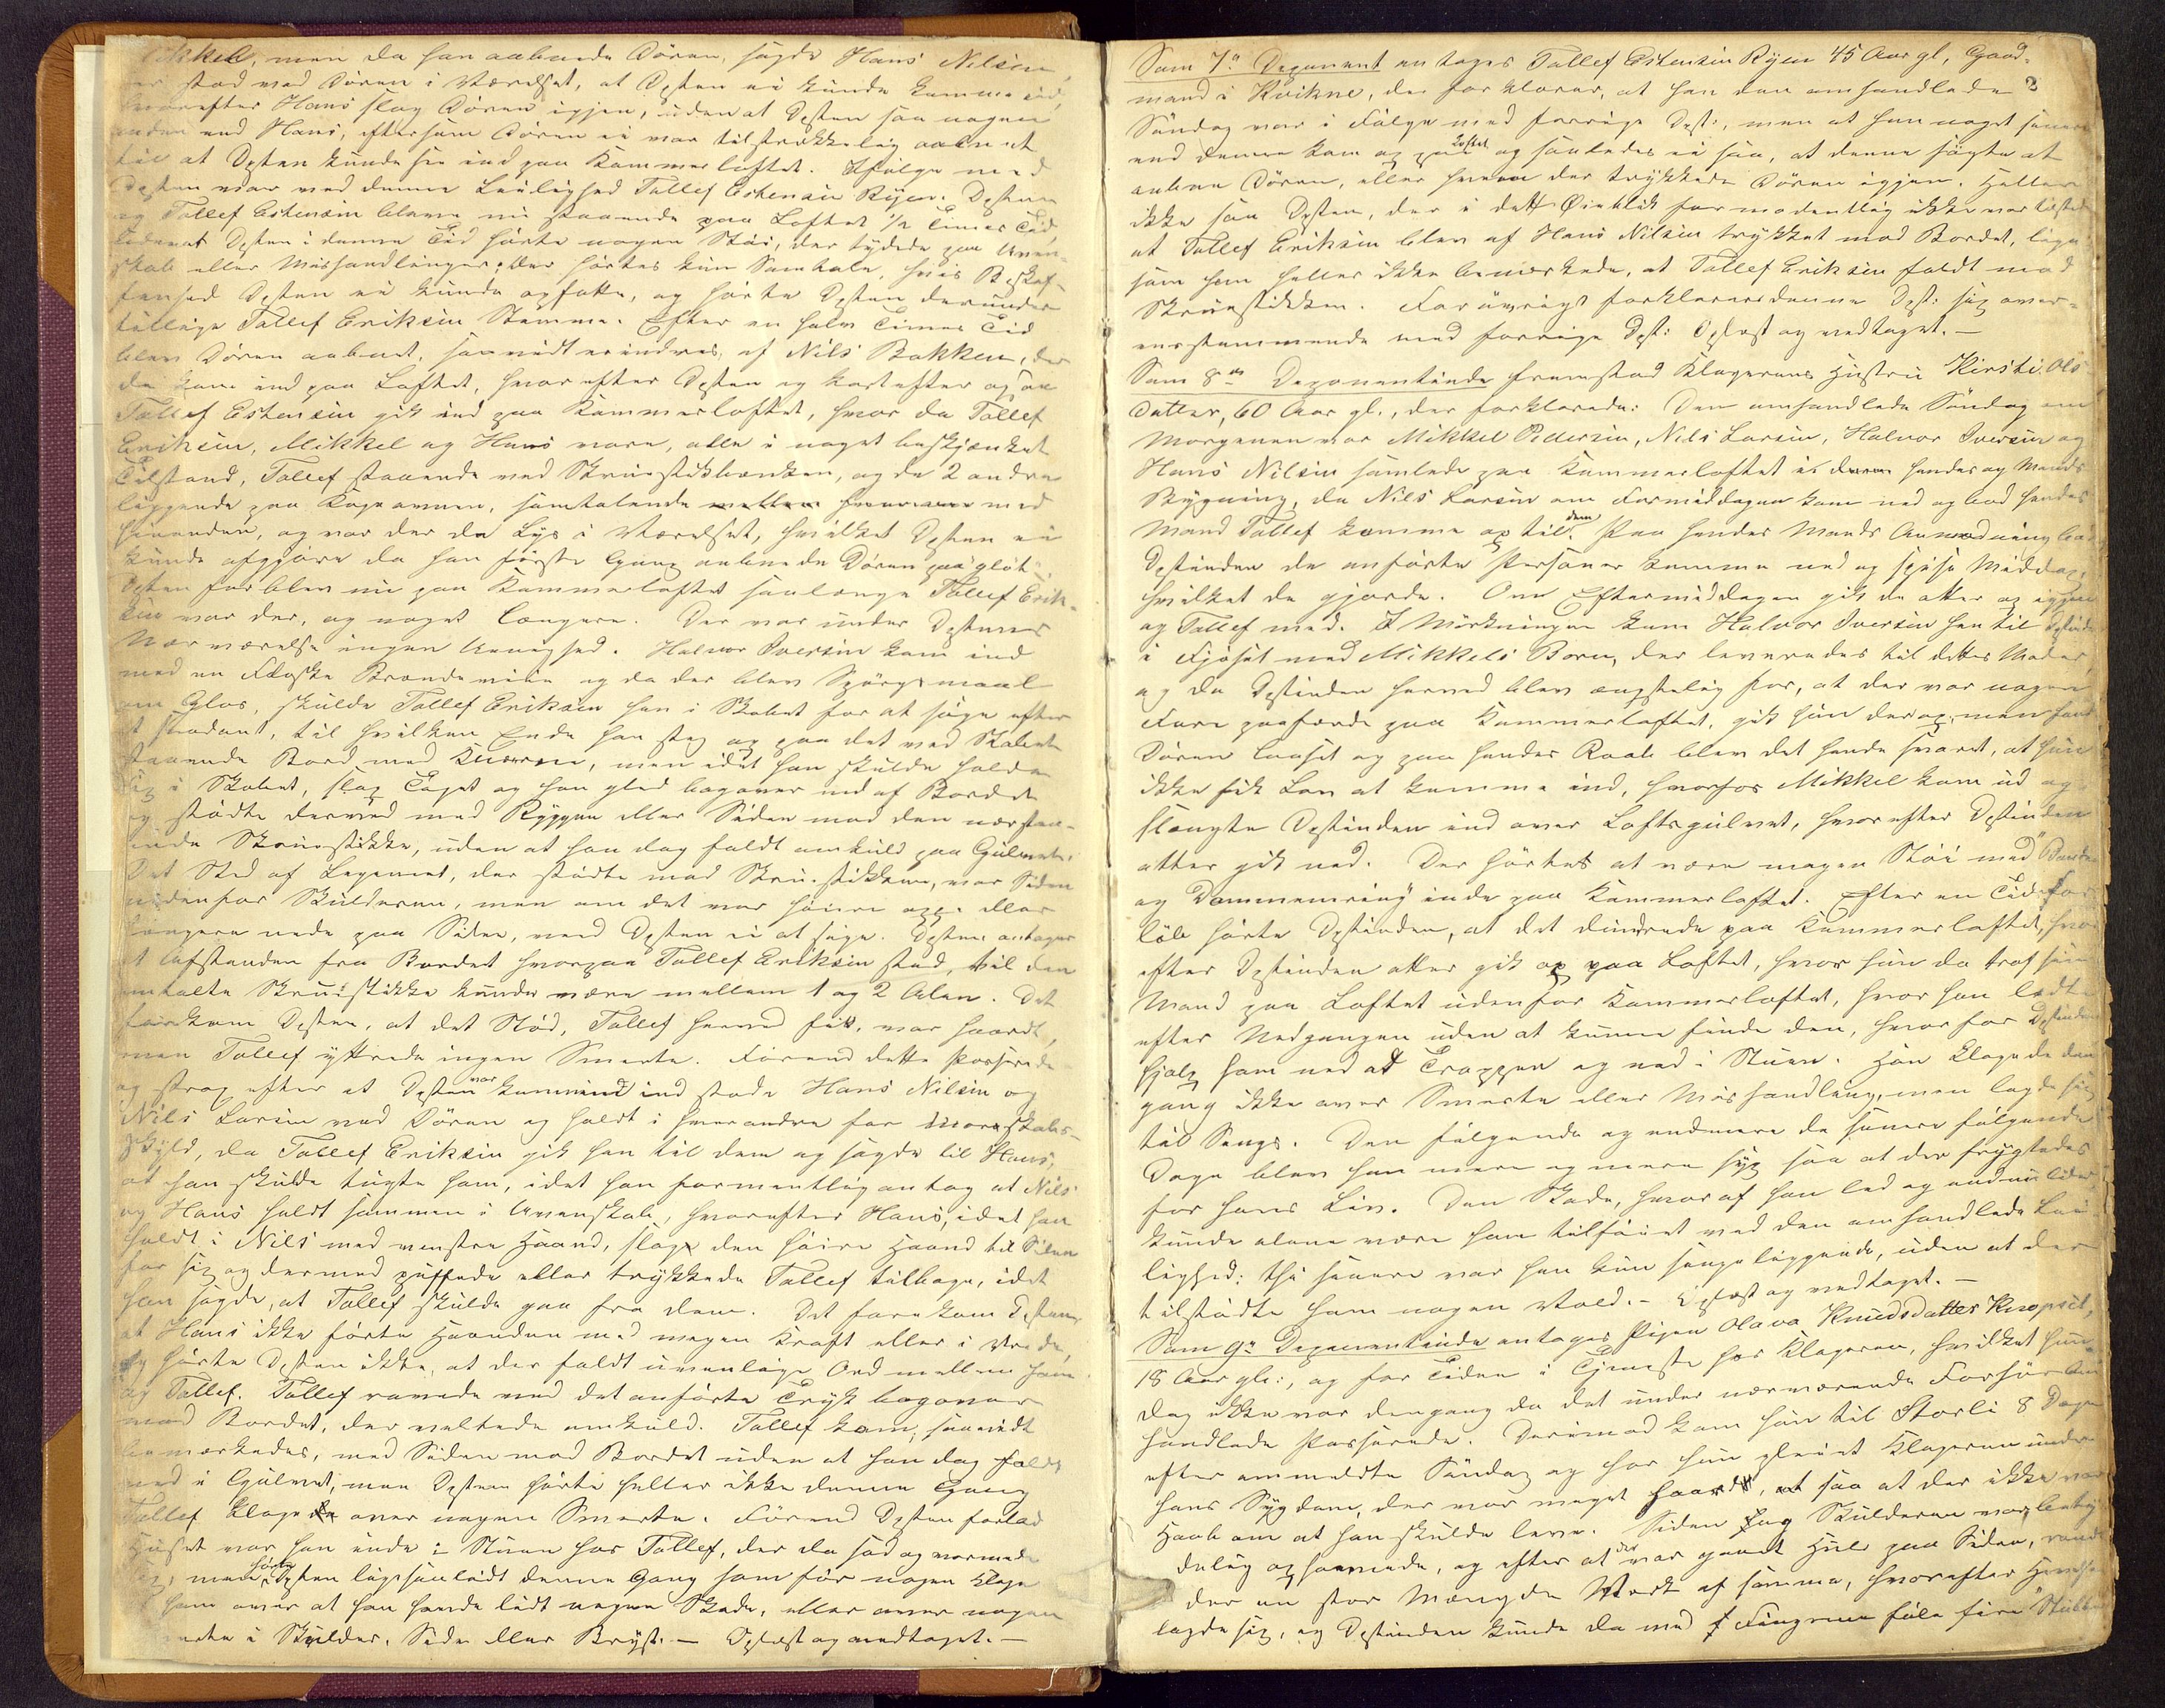 Mikkel, men da han aabnede Døren, sagde Hans Nilsen,
er stod ved Døren i Værelset, at Dpten ei kunde komme ind,
hvorefter Hans slog Døren igjen, uden at Dpten saa nogen
anden end Hans, eftersom Døren ei var tilstrækkelig aabnet
til at Dpten kunde see ind paa Kammerloftet. Ifølge med
Dpten var ved denne Leilighed Tollef Estensen Ryen. Dpten
og Tollef Estensen bleve nu staaende paa Loftet ½ Times Tid,
uden at Dpten i denne Tid hørte nogen Støi, der tydede paa Uven-
skab eller Mishandlinger; der hørtes kun Samtale, hvis Beskaf-
fenhed Dpten ei kunde opfatte, og hørte Dpten derunder
tillige Tollef Eriksens Stemme. Efter en halv Times Tid
blev Døren aabnet, saavidt erindres, af Nils Bakken, der
da kom ud paa Loftet, hvorefter Dpten og kort efter ogsaa
Tollef Estensen gik ind paa Kammerloftet, hvor da Tollef
Eriksen, Mikkel og Hans vare, alle i noget beskjænket
Tilstand, Tollef staaende ved Skruestikbænken, og de 2 andre
liggende paa samtalende mellem hverandre med
hinanden, og var der da Lys i Værelset, hvilket Dpten ei
kunde afgjøre da han første Gang aabnede Døren paa gløt.
Dpten forblev nu paa Kammerloftet saalænge Tollef Erik-
sen var der, og noget længere. Der var under Dptens
Nærværelse ingen Uenighed. Halvor Iversen kom ind
med en Flaske Brændeviin og da der blev Spørgsmaal
om Glas, skulde Tollef Eriksen hen i Skabet for at søge efter
et saadant, til hvilken Ende han steg op paa det ved Skabet
staaende Bord med Knæerne, men idet han skulde holde
sig i Skabet, slap Taget og han gled bagover ned af Bordet
og stødte derved med Ryggen eller Siden mod den nærstaa-
ende Skruestikke, uden at han dog faldt omkuld paa Gulvet.
Det Sted af Legemet, der stødte mod Skruestikken, var Siden
nedenfor Skulderen, men om det var høiere oppe eller
længere nede paa Siden, veed Dpten ei at sige. Dpten antager
at Afstanden fra Bordet hvorpaa Tollef Eriksen stod, til den
omtalte Skruestikke kunde være mellem 1 og 2 Alen. Det
forekom Dpten, at det Stød, Tollef herved fik, var haardt,
men Tollef yttrede ingen Smerte. Førend dette passerede
og strax efter at Dpten var kommen ind stode Hans Nilsen og
Nils Larsen ved Døren og holdt i hverandre for Morskabs-
skyld, da Tollef Eriksen gik hen til dem og sagde til Hans,
at han skulde tugte ham, idet han formentlig antog at Nils
og Hans holdt sammen i Uvenskab, hvorefter Hans, idet han
holdt i Nils med venstre Haand, slog den høire Haand til Siden
for sig og dermed puffede eller trykkede Tollef tilbage, idet
han sagde, at Tollef skulde gaa fra dem. Det forekom Dpten,
at Hans ikke førte Haanden med megen Kraft eller i Vrede,
og hørte Dpten ikke, at der faldt uvenlige Ord mellem ham
og Tollef. Tollef ravede ved det anførte Tryk bagover
mod Bordet, der veltede omkuld. Tollef kom, saavidt
bemærkedes, med Siden mod Bordet uden at han dog faldt
ned i Gulvet, men Dpten hørte heller ikke denne Gang
Tollef klage over nogen Smerte. Førend Dpten forlod
Huset var han inde i Stuen hos Tollef, der da sad og varmede
sig, men hørte Dpten ligesaalidt denne Gang som før nogen Klage
af ham over at han havde lidt nogen Skade, eller over nogen
Smerte i Skulder, Side eller Bryst. — Oplæst og vedtaget. —
Som 7de Deponent antages Tollef Estensen Ryen 45 Aar gl., Gaard-
mand i Kvikne, der forklarer, at han den omhandlede 3
Søndag var i Følge med forrige Dpt:, men at han noget senere
end denne kom op paa Loftet og saaledes ei saa, at denne søgte at
aabne Døren, eller hvem der trykkede Døren igjen. Heller
ikke saa Dpten, der i dette Øieblik formodentlig ikke var tilstede
at Tollef Eriksen blev af Hans Nilsen trykket mod Bordet, lige-
som han heller ikke bemærkede, at Tollef Eriksen faldt mod
Skruestikken. Forøvrigt forklarer denne Dpt: sig over-
eensstemmende med forrige Dpt: Oplæst og vedtaget. —
Som 8de Deponentinde fremstod Klagerens Hustru Kirsti Ols-
datter, 60 Aar gl., der forklarede: Den omhandlede Søndag om
Morgenen var Mikkel Pedersen, Nils Larsen, Halvor Iversen og
Hans Nilsen samlede paa Kammerloftet i hendes og Mands
Bygning, da Nils Larsen om Formiddagen kom ned og bad hendes
Mand Tollef komme op til dem. Paa hendes Mands Anmodning bad
Dptinden de anførte Personer komme ned og spise Middag,
hvilket de gjorde. Om Eftermiddagen gik de atter op igjen
og Tollef med. I Mørkningen kom Halvor Iversen hen til Dptinden
i Fjøset med Mikkels Barn, der leveredes til dettes Moder,
og da Dptinden herved blev ængstelig for, at der var nogen
Fare paafærde paa Kammerloftet, gik hun derop, men fandt
Døren laaset og paa hendes Raab blev det hende svaret, at hun
ikke fik Lov at komme ind, hvorfor Mikkel kom ud og
slængte Dptinden ind over Loftsgulvet, hvorefter Dptinden
atter gik ned. Der hørtes at være megen Støi med Banden
og inde paa Kammerloftet. Efter en Tids For-
løb hørte Dptinden, at det dundrede paa Kammerloftet, hvor-
efter Dptinden atter gik op paa Loftet, hvor hun da traf sin
Mand paa Loftet udenfor Kammerloftet, hvor han ledte
efter Nedgangen uden at kunne finde den, hvorfor Dptinden
hjalp ham ned ad Trappen og ned i Stuen. Han klagede den-
gang ikke over Smerte eller Mishandling, men lagde sig
til Sengs. Den følgende og endmere de senere følgende
Dage blev han mere og mere syg saa at der frygtedes
for hans Liv. Den Skade, hvoraf han led og endnu lider
kunde alene være ham tilføiet ved den omhandlede Lei-
lighed; thi senere var han kun sengeliggende, uden at der
tilstødte ham nogen Vold. — Oplæst og vedtaget. —
Som 9de Deponentinde antages Pigen Olava Knudsdatter
18 Aar gl:, og for Tiden i Tjeneste hos Klageren, hvilket hun
dog ikke var dengang da det under nærværende Forhør om-
handlede Passerede. Derimod kom hun til Storli 8 Dage
efter ommeldte Søndag og har hun pleiet Klageren under
hans Sygdom, der var meget haard, saa at der ikke var
Haab om at han skulde leve. Siden og Skulderen var bety-
delig ophovnede, og efter at der var gaaet Hul paa Siden, randt
der en stor Mængde Vædske af samme, hvorefter Hævelsen
lagde sig, og Dptinden kunde da med Fingrene føle fire Stubber